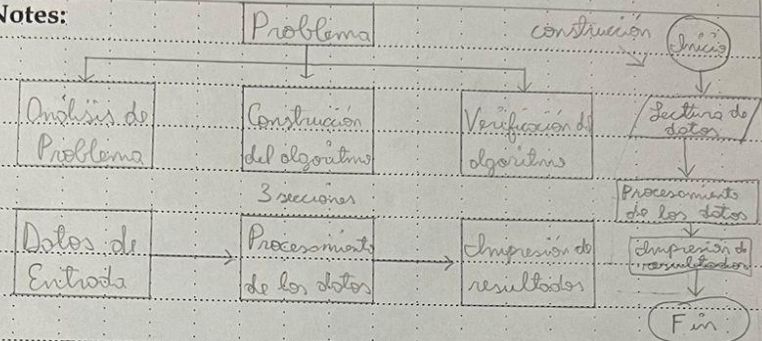 Notes:
Problema
construcción
Inicio
Análisis de
Problema
Construcción
del algoritmo
Verificación de
algoritmo
Lectura de
datos
3 secciones
Procesamiento
de los datos
Datos de
Entrada
Procesamiento
de los datos
Impresión de
resultados
Impresión de
resultados
Fin